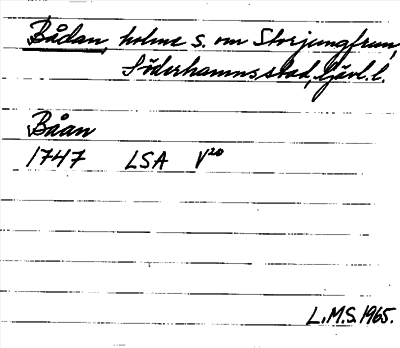 Bådan, holme s. om Storjungfrun,
Söderhamns stad, Gävl. l.
Båan
1747 LSA V20
L.M.S. 1965.